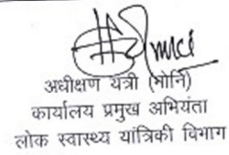 अधीक्षण यंत्री (मोनि)
कार्यालय प्रमुख अभियंता
लोक स्वास्थ्य यांत्रिकी विभाग